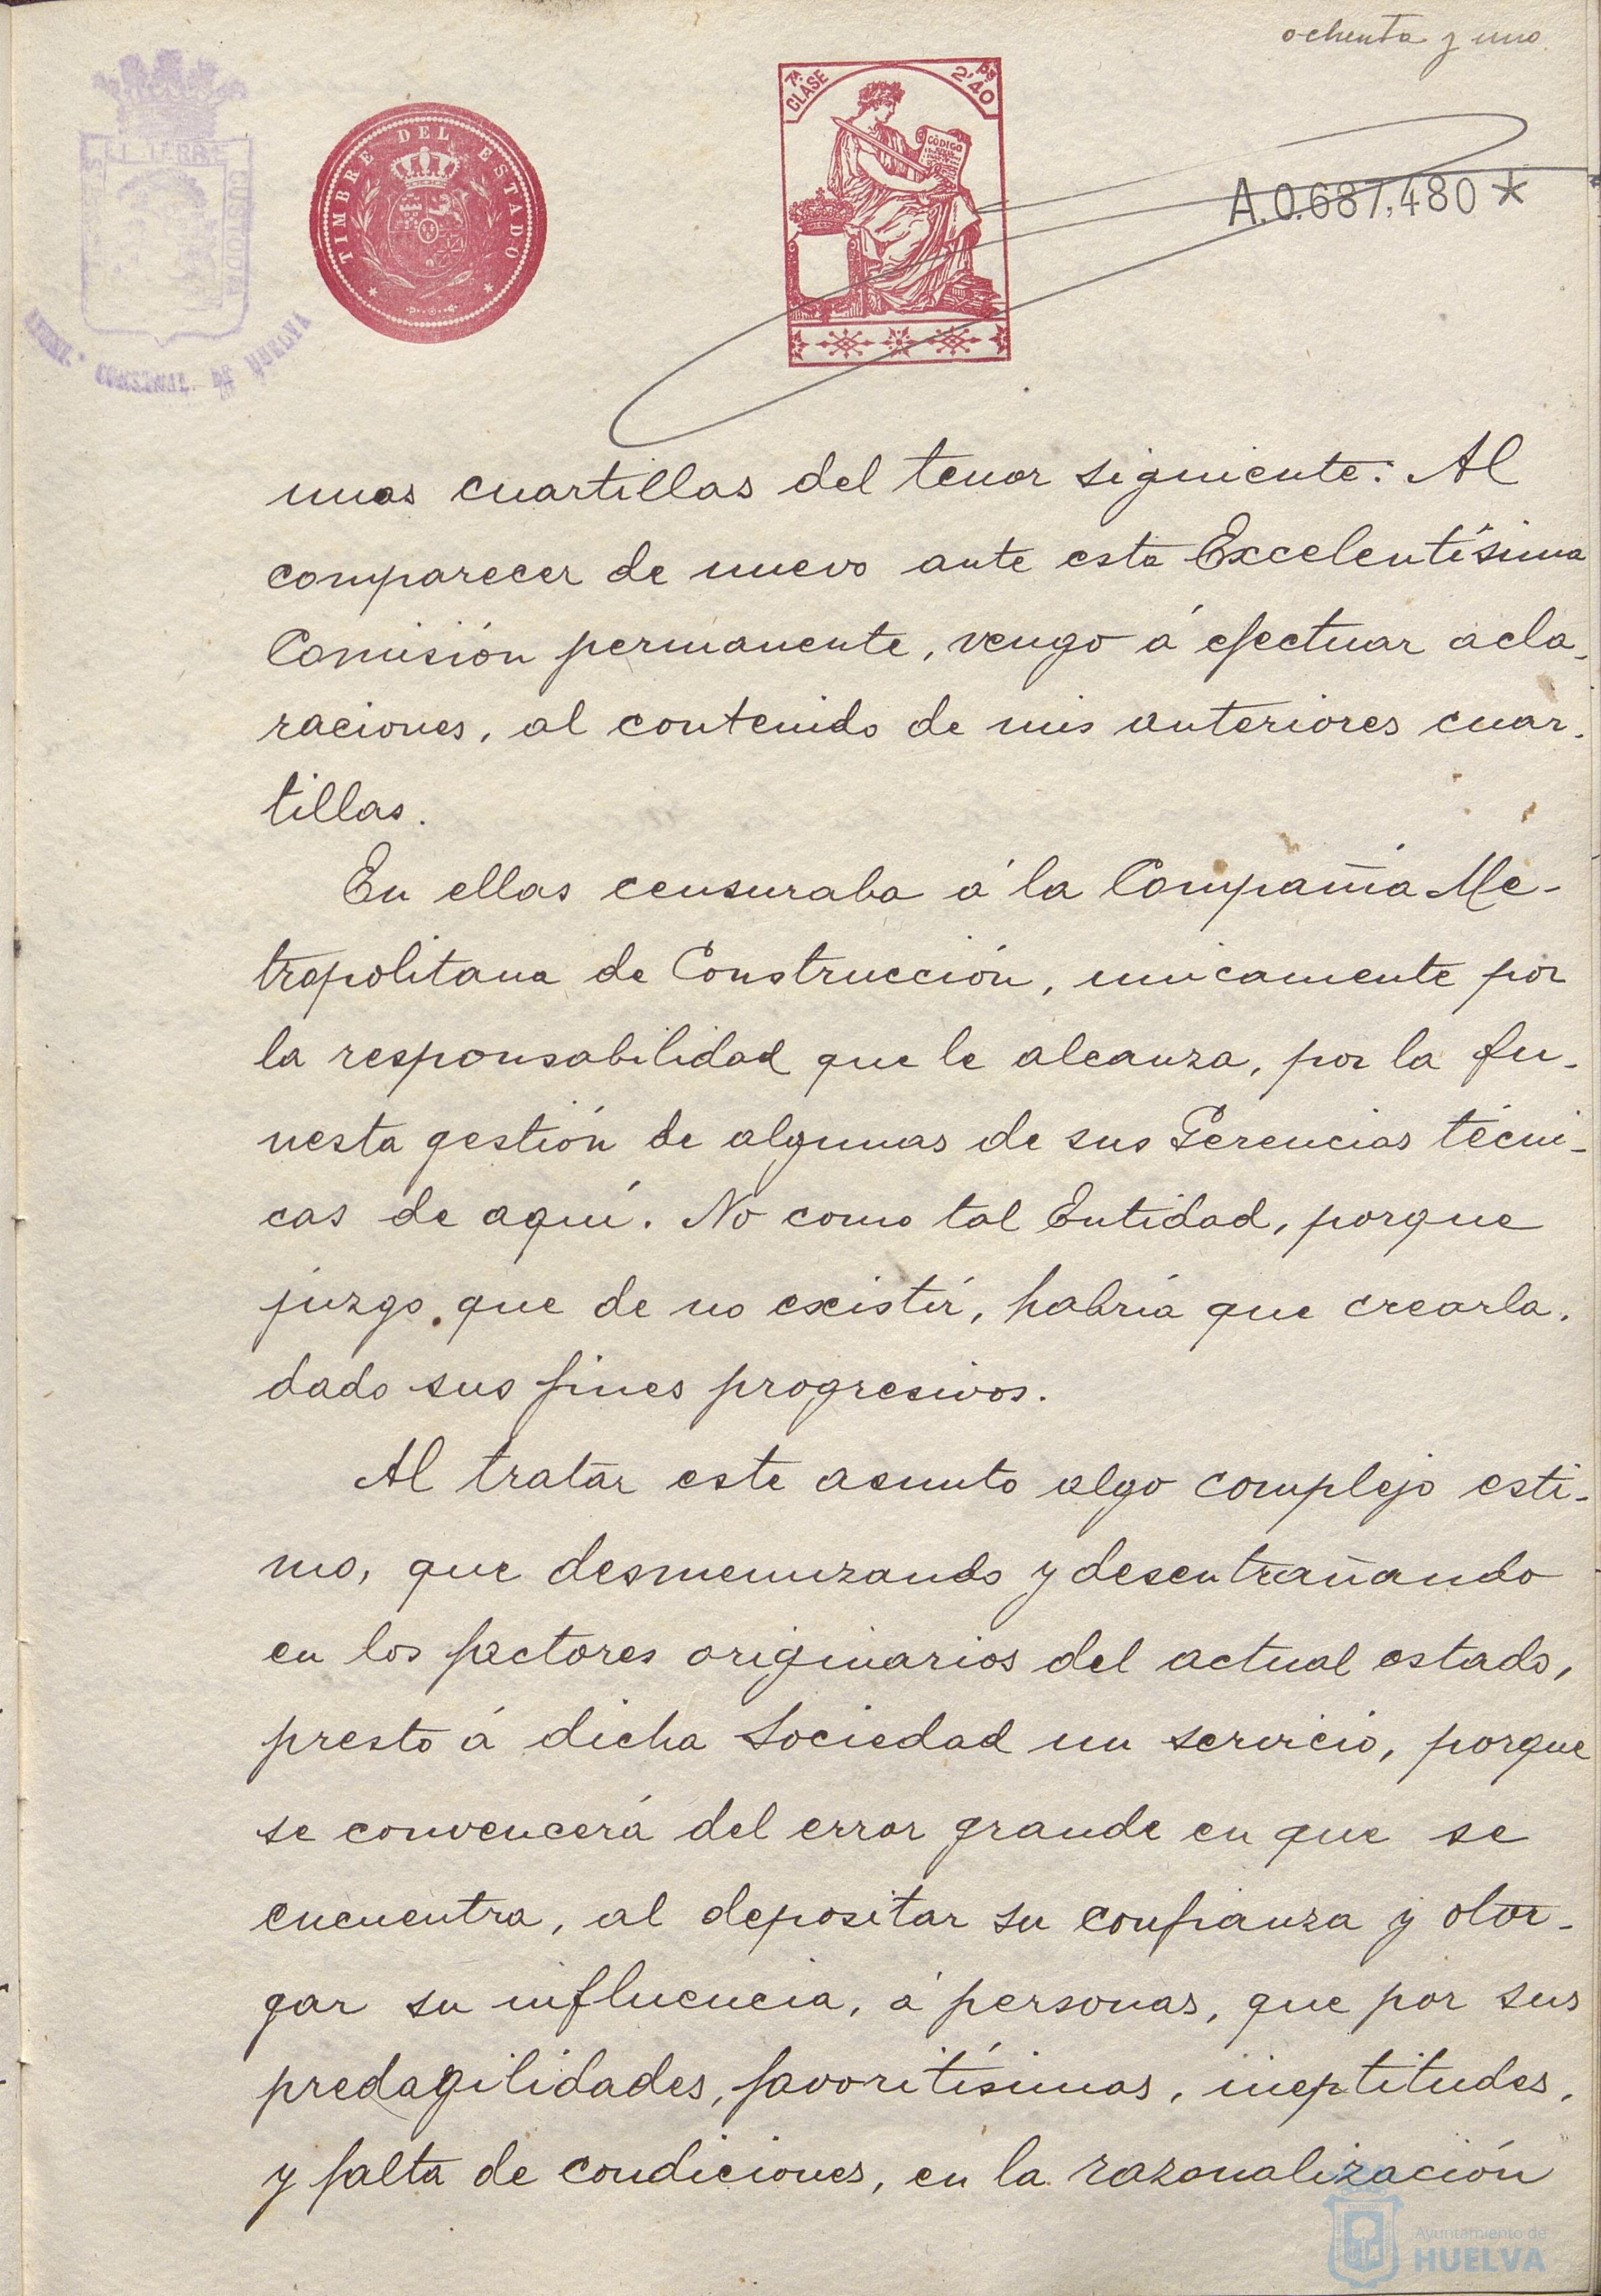 ochenta y uno
TIMBRE DEL ESTADO
7ª CLASE
2,40 Pts
CÓDIGO
A.0.687,480*
CUSTODIA
HUELVA
unas cuartillas del tenor siguiente: Al
comparecer de nuevo ante esta Excelentísima
Comisión permanente, vengo á efectuar acla-
raciones, al contenido de mis anteriores cuar-
tillas.
En ellas censuraba á la Compañía Me-
tropolitana de Construcción, unicamente por
la responsabilidad que le alcanza, por la fu-
nesta gestión de algunas de sus Gerencias técni-
cas de aquí. No como tal Entidad, porque
juzgo, que de no existir, habría que crearla,
dado sus fines progresivos.
Al tratar este asunto algo complejo esti-
mo, que desmenuzando y desentrañando
en los factores originarios del actual estado,
presto á dicha Sociedad un servicio, porque
se convencerá del error grande en que se
encuentra, al depositar su confianza y otor-
gar su influencia, á personas, que por sus
predagilidades, favoritísimos, ineptitudes,
y falta de condiciones, en la razonalización
Ayuntamiento de
HUELVA